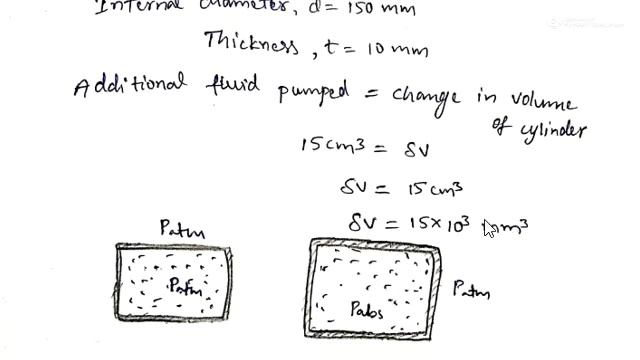 Internal diameter, d = 150 mm
Thickness, t = 10 mm
Additional fluid pumped = change in volume
of cylinder
15cm³ = δV
δV = 15cm³
δV = 15×10³ mm³
Patm
Patm
Pabs
Patm